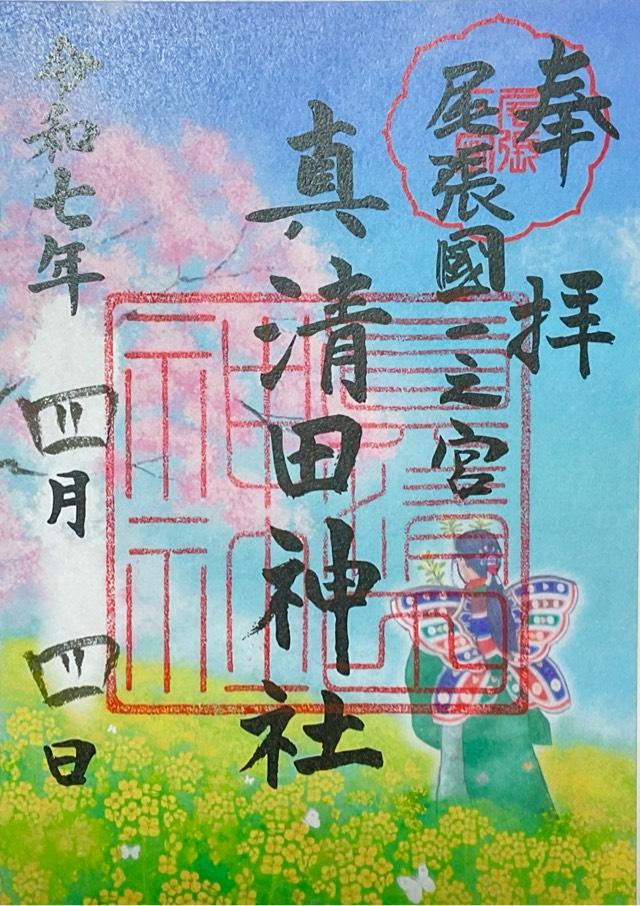 奉拝
尾張國一之宮
真清田神社
令和七年四月四日